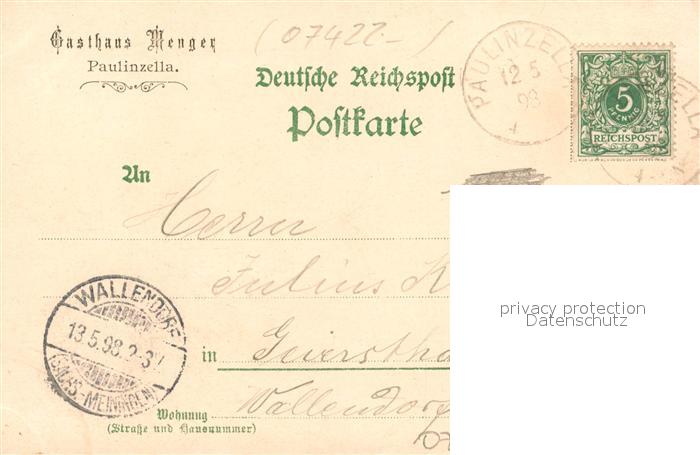 Gasthaus Menger
Paulinzella.
(07422-)
Deutsche Reichspost
Postkarte
PAULINZELL
12 5
98
5
PFENNIG
REICHSPOST
An
Herrn
Julius K
in
Wallendorf
WALLENDORF
13.5.98.2-3
(SACHS-MEININGEN)
Wohnung
(Straße und Hausnummer)
privacy protection
Datenschutz